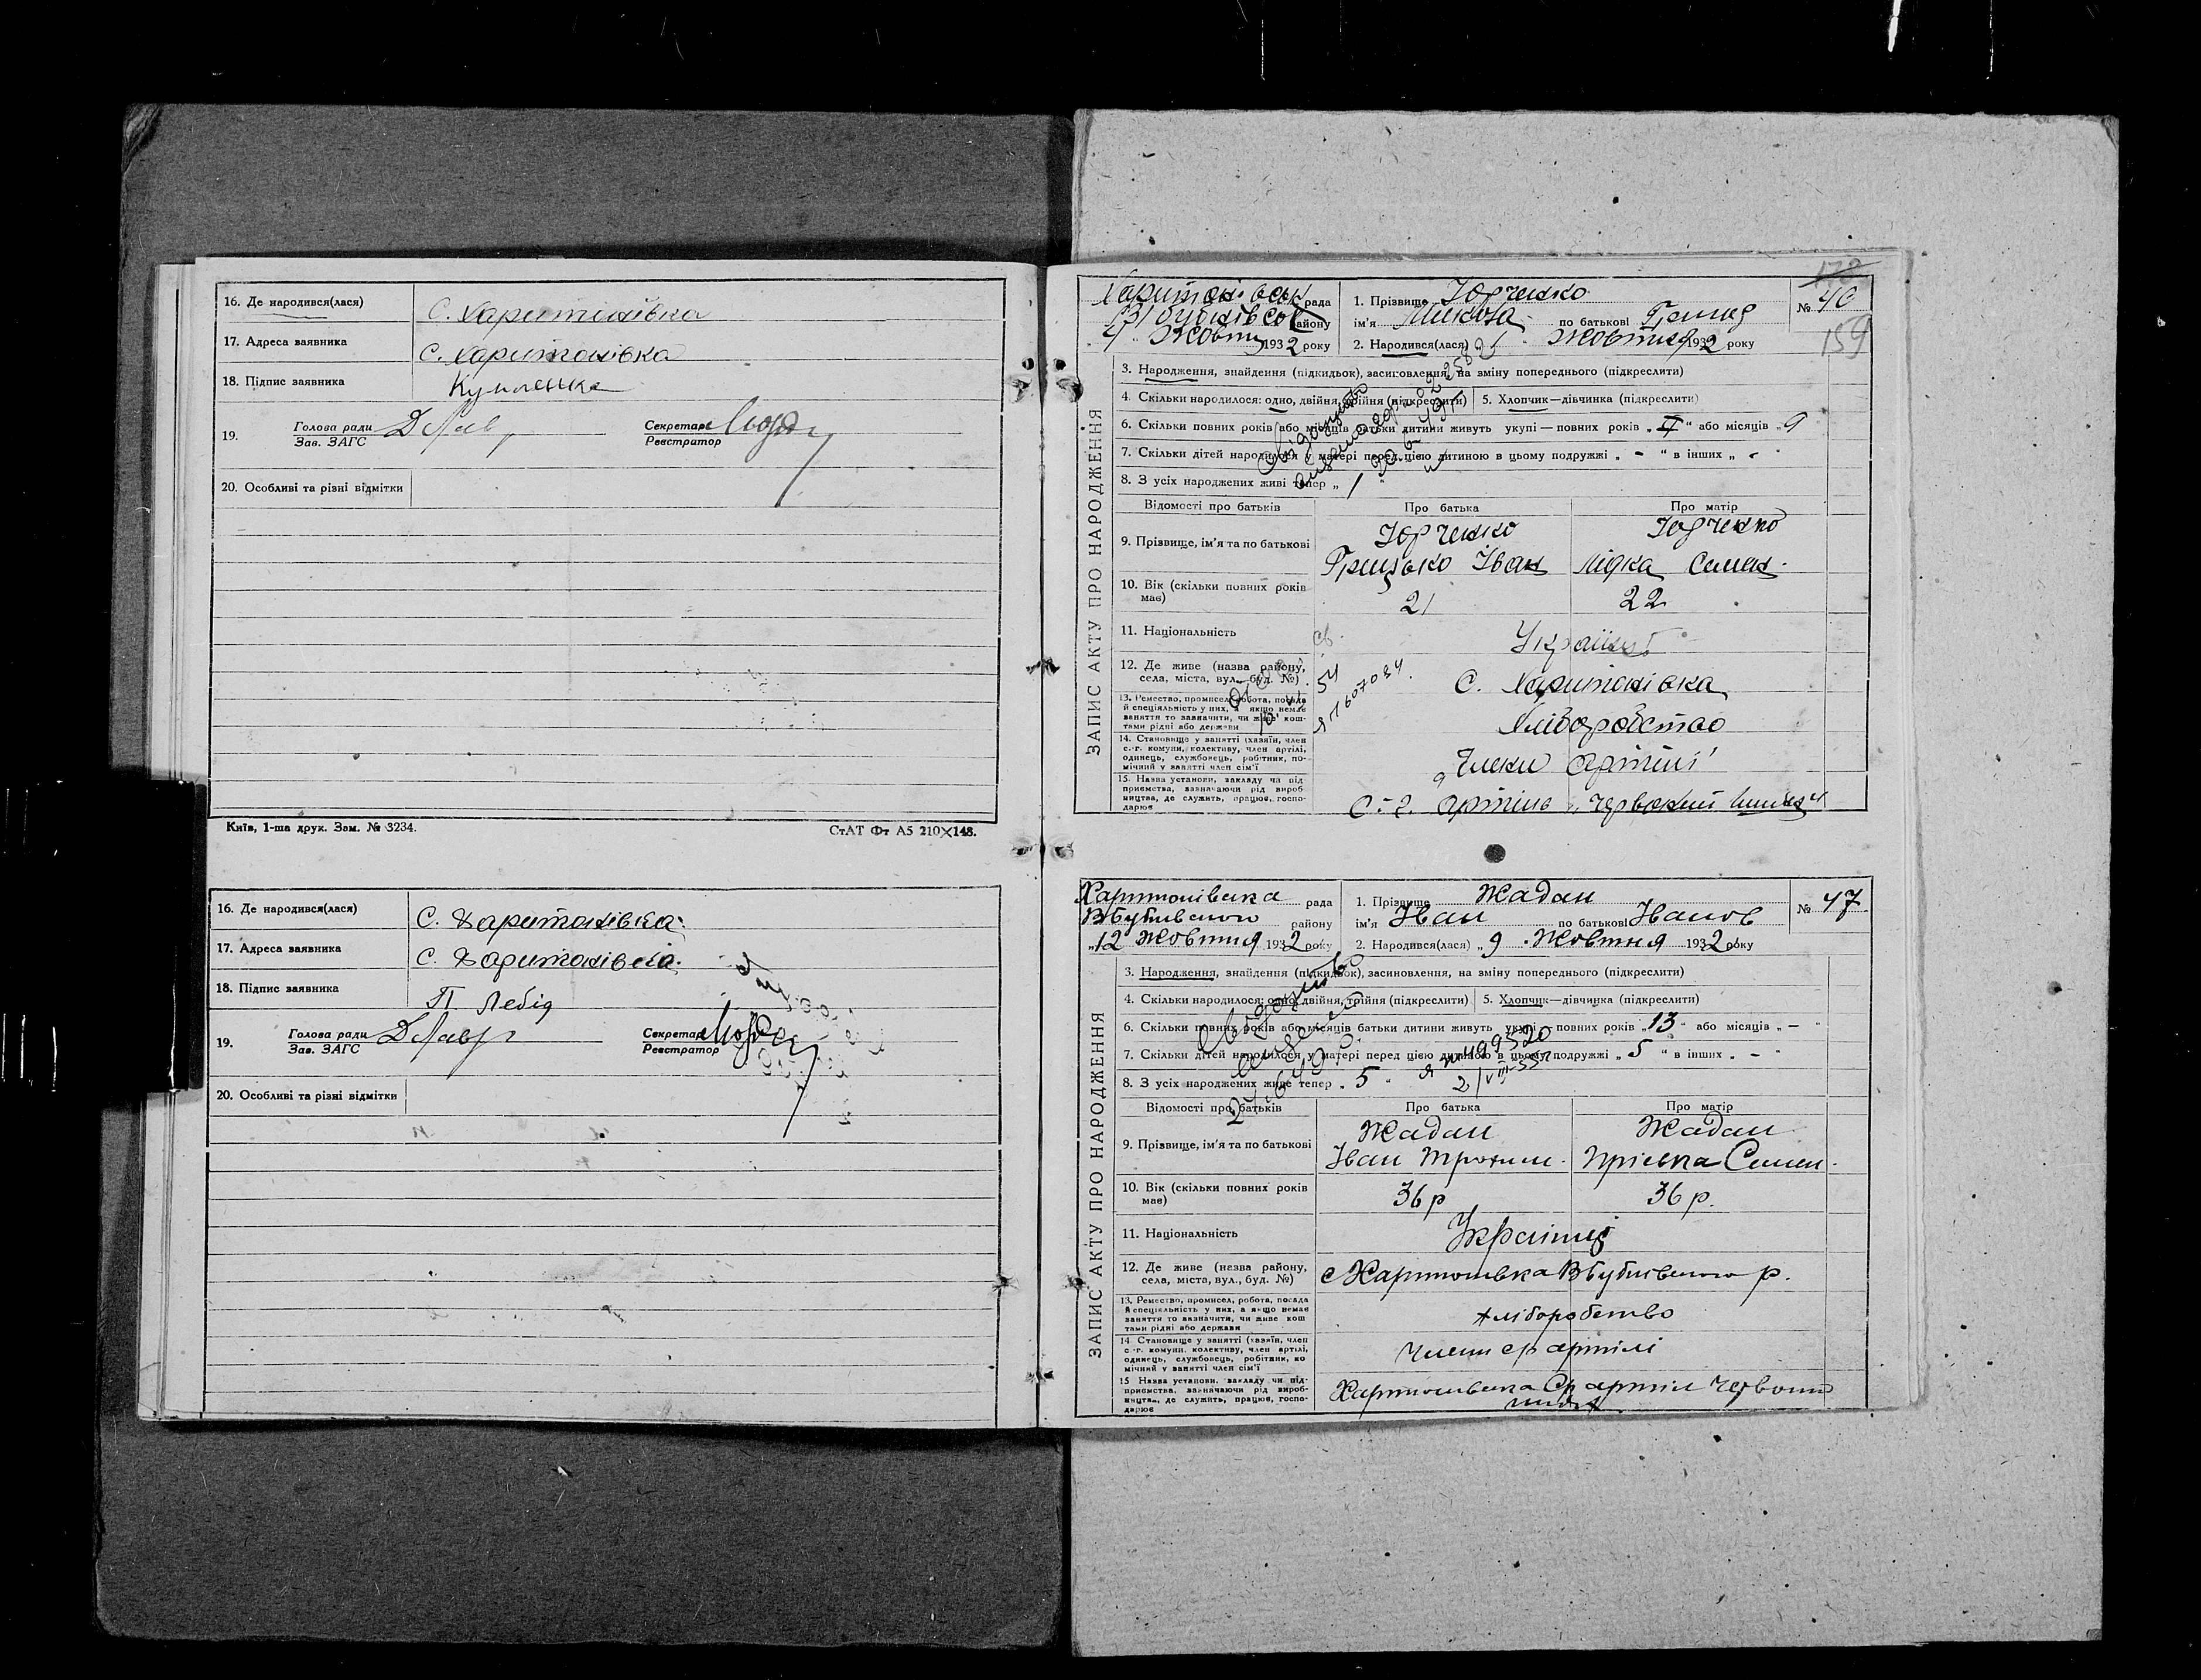 16. Де народився(лася) С. Харитонівка
17. Адреса заявника С. Харитонівка
18. Підпис заявника
19. Голова ради Зав. ЗАГС Секретар Реєстратор
20. Особливі та різні відмітки
Київ, 1-ша друк. Зам. № 3234. СтАТ Фт А5 210×148.
16. Де народився(лася) С. Харитонівка
17. Адреса заявника С. Харитонівка
18. Підпис заявника П Лебід
19. Голова ради Зав. ЗАГС Секретар Реєстратор
20. Особливі та різні відмітки
159
ЗАПИС АКТУ ПРО НАРОДЖЕННЯ
рада 1. Прізвище Юрченко № 46
району ім'я Микола по батькові Гриц
Жовтня 1932 року 2. Народився(лася) Жовтня 1932 року
3. Народження, знайдення (підкидьок), засиновлення, на зміну попереднього (підкреслити)
4. Скільки народилося: одно, двійня, трійня (підкреслити) 5. Хлопчик—дівчинка (підкреслити)
6. Скільки повних років або місяців батьки дитини живуть укупі — повних років „ “ або місяців „ 9
7. Скільки дітей народилося у матері перед цією дитиною в цьому подружжі „ - “ в інших „ - “
8. З усіх народжених живі тепер „ 1 “
Відомості про батьків Про батька Про матір
9. Прізвище, ім'я та по батькові Юрченко Юрченко
Грицько Іван Лідка Семен.
10. Вік (скільки повних років має) 21 22
11. Національність
12. Де живе (назва району, села, міста, вул., буд. №) С. Харитонівка
54
ЯП 607034.
13. Ремество, промисел, робота, посада й спеціяльність у них, а якщо немає заняття то зазначити, чи живе коштами рідні або держави Хліборобство
14. Становище у занятті (хазяїн, член с.-г. комуни, колективу, член артілі, одинець, службовець, робітник, помічний у занятті член сім'ї Члени артілі
15. Назва установи, закладу чи підприємства, зазначаючи рід виробництва, де служить, працює, господарює С.-г. артіль „Червоний шлях“
ЗАПИС АКТУ ПРО НАРОДЖЕННЯ
рада 1. Прізвище Жадан № 47
району ім'я Іван по батькові Іванов
„12 Жовтня 1932 року 2. Народився(лася) „9 Жовтня 1932 року
3. Народження, знайдення (підкидьок), засиновлення, на зміну попереднього (підкреслити)
4. Скільки народилося: одно, двійня, трійня (підкреслити) 5. Хлопчик—дівчинка (підкреслити)
6. Скільки повних років або місяців батьки дитини живуть укупі — повних років „13“ або місяців „ — “
7. Скільки дітей народилося у матері перед цією дитиною в цьому подружжі „ 5 “ в інших „ - “
8. З усіх народжених живе тепер „ 5 “
Відомості про батьків Про батька Про матір
9. Прізвище, ім'я та по батькові Жадан Жадан
Іван Трохим. Пріська Семен.
10. Вік (скільки повних років має) 36 р 36 р.
11. Національність Українці
12. Де живе (назва району, села, міста, вул., буд. №)
13. Ремество, промисел, робота, посада й спеціяльність у них, а якщо немає заняття то зазначити, чи живе коштами рідні або держави хліборобство
14. Становище у занятті (хазяїн, член с.-г. комуни, колективу, член артілі, одинець, службовець, робітник, помічний у занятті член сім'ї члени артілі
15. Назва установи, закладу чи підприємства, зазначаючи рід виробництва, де служить, працює, господарює